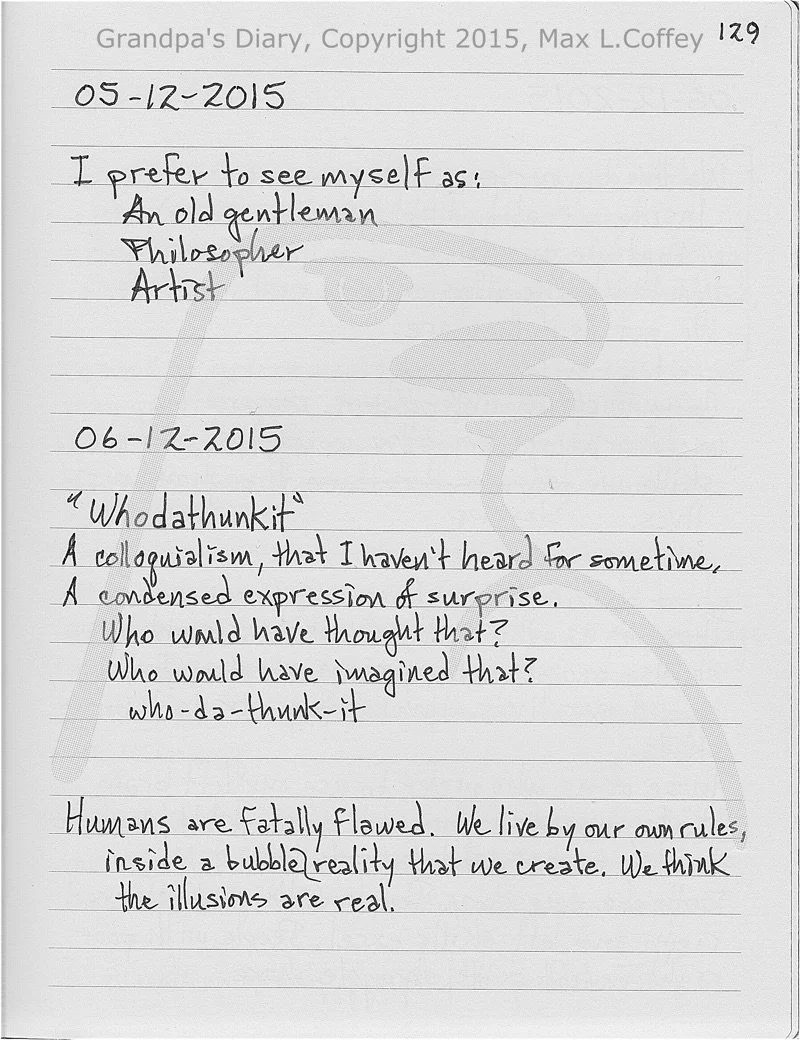 Grandpa's Diary, Copyright 2015, Max L.Coffey 129
05-12-2015
I prefer to see myself as:
An old gentleman
Philosopher
Artist
06-12-2015
"Whodathunkit"
A colloquialism, that I haven't heard for sometime,
A condensed expression of surprise.
Who would have thought that?
Who would have imagined that?
who-da-thunk-it
Humans are fatally flawed. We live by our own rules,
inside a bubble reality that we create. We think
the illusions are real.